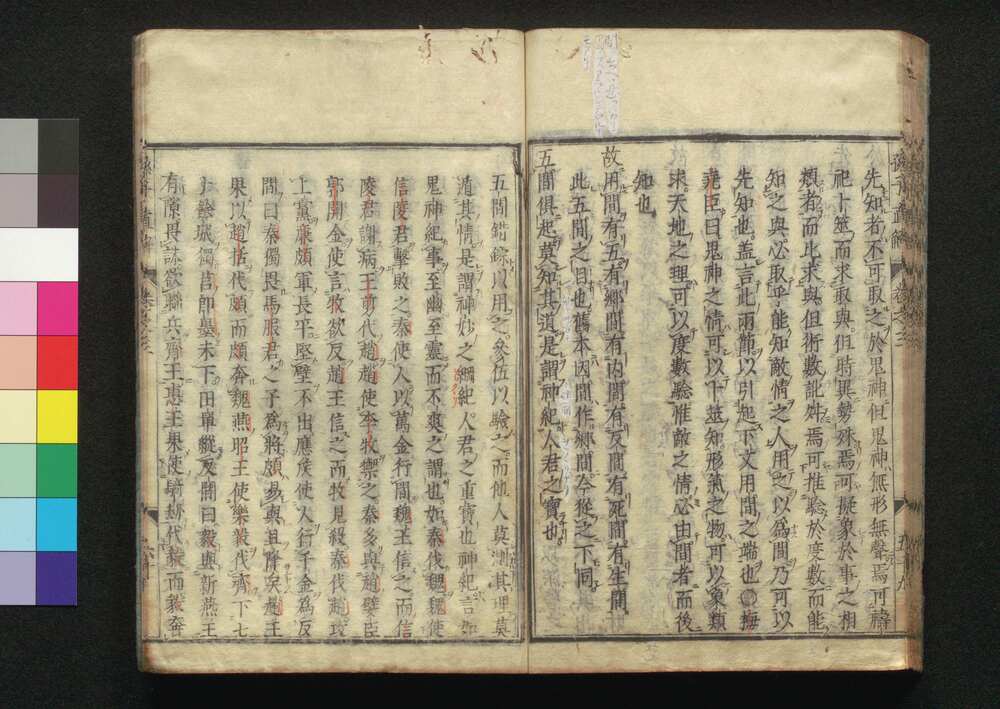 先知者不可取之於鬼神但鬼神無形無聲焉可禱
祀卜筮而求取與但時異勢殊焉可擬象於事之相
類者而比求與但術數訛舛焉可推驗於度數而能
知之與必取乎能知敵情之人用之以爲間乃可以
先知也盖言此兩節以引起下文用間之端也○梅
堯臣曰鬼神之情可以卜筮知形氣之物可以象類
求天地之理可以度數驗惟敵之情必由間者而後
知也
故用間有五有鄉間有内間有反間有死間有生間
此五間之目也舊本因間作鄉間今從之下同
五間俱起莫知其道是謂神紀人君之寶也
五間錯綜以用之參伍以驗之而他人莫測其理莫
遁其情是謂神妙之綱紀人君之重寶也神紀言如
鬼神紀事至幽至靈而不爽之謂也如秦伐魏魏使
信陵君擊敗之秦使人以萬金行間魏王信之而信
陵君謝病王剪代趙趙使李牧禦之秦多與趙嬖臣
郭開金使言牧欲反趙王信之而牧見殺秦伐趙攻
上黨廉頗軍長平堅壁不出應侯使人行千金爲反
間曰秦獨畏馬服君之子爲將頗易與且降矣趙王
果以趙括代頗而頗奔魏燕昭王使樂毅伐齊下七
十餘城獨莒即墨未下田單縱反間曰毅與新燕王
有隙畏誅欲聯兵齊王惠王果使騎劫代毅而毅奔